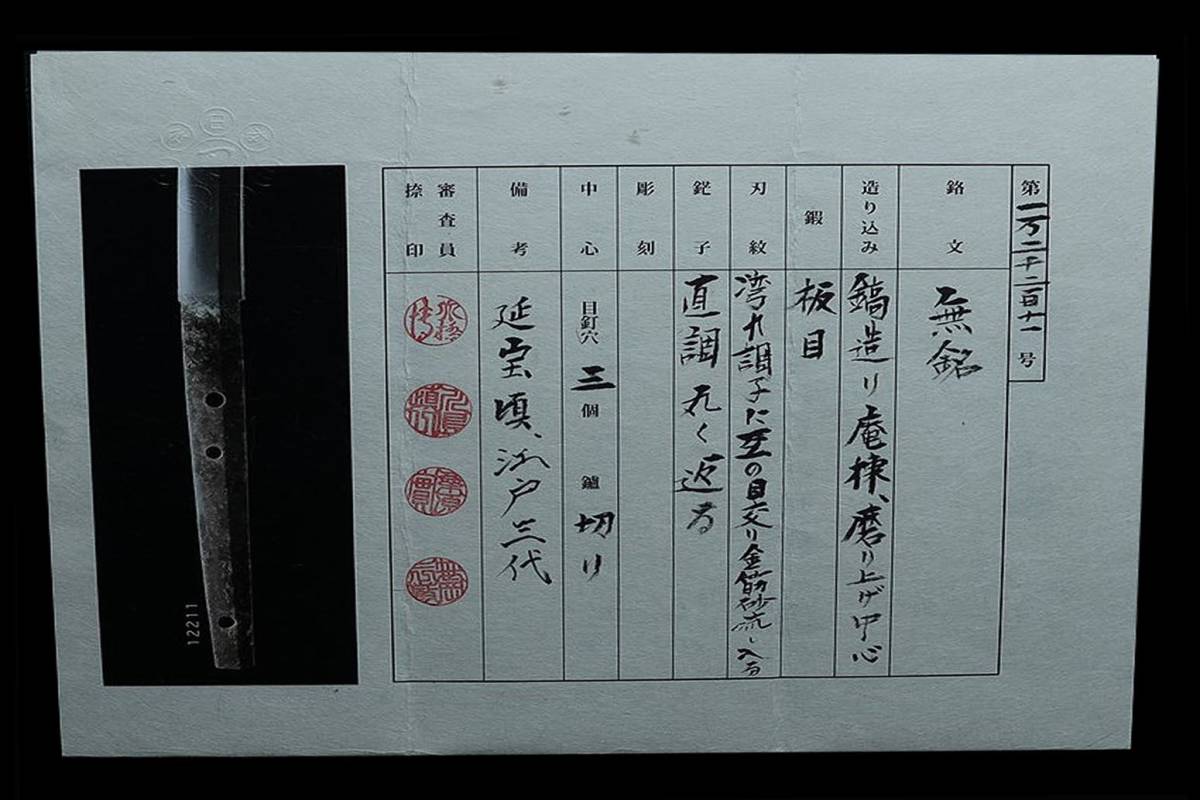 第一万二千二百十一号
銘文
無銘
造り込み
鎬造り庵棟、磨り上げ中心
鍛
板目
刃紋
湾れ調子に互の目交り金筋砂流し入る
鋩子
直調丸く返る
彫刻
中心
目釘穴 三個 鑢 切り
備考
延宝頃、江戸三代
審査員
捺印
12211